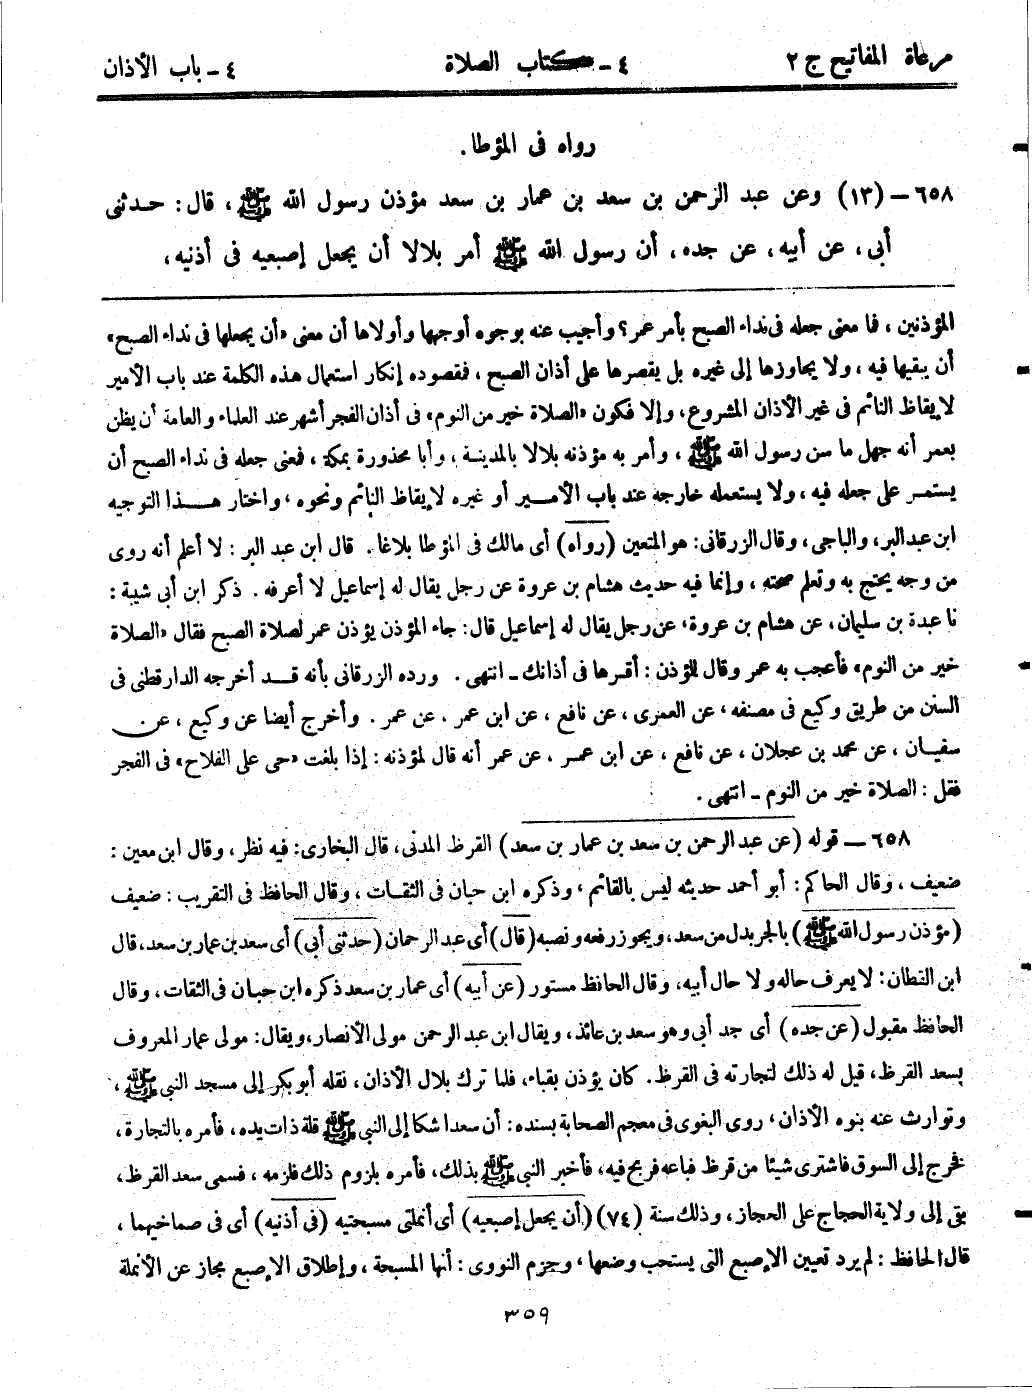 مرعاة المفاتيح ج ٢
٤ - كتاب الصلاة
٤ - باب الأذان
رواه فى المؤطا.
٦٥٨ – (١٣) وعن عبد الرحمن بن سعد بن عمار بن سعد مؤذن رسول الله ﷺ، قال: حدثنى
أبى، عن أبيه، عن جده، أن رسول الله ﷺ أمر بلالا أن يجعل إصبعيه فى أذنيه،
المؤذنين، فما معنى جعله فى نداء الصبح بأمر عمر؟ وأجيب عنه بوجوه أوجهها وأولاها أن معنى «أن يجعلها فى نداء الصبح»
أن يبقيها فيه، ولا يجاوزها إلى غيره بل يقصرها على أذان الصبح، فمقصوده إنكار استعمال هذه الكلمة عند باب الأمير
لإيقاظ النائم فى غير الأذان المشروع، وإلا فكون «الصلاة خير من النوم» فى أذان الفجر أشهر عند العلماء والعامة أن يظن
بعمر أنه جهل ما سن رسول الله ﷺ، وأمر به مؤذنه بلالا بالمدينة، وأبا محذورة بمكة، فمعنى جعله فى نداء الصبح أن
يستمر على جعله فيه، ولا يستعمله خارجه عند باب الأمير أو غيره لإيقاظ النائم ونحوه، واختار هذا التوجيه
ابن عبد البر، والباجى، وقال الزرقانى: هو المتعين (رواه) أى مالك فى المؤطا بلاغا. قال ابن عبد البر: لا أعلم أنه روى
من وجه يحتج به وتعلم صحته، وإنما فيه حديث هشام بن عروة عن رجل يقال له إسماعيل لا أعرفه. ذكر ابن أبى شيبة:
نا عبدة بن سليمان، عن هشام بن عروة، عن رجل يقال له إسماعيل قال: جاء المؤذن يؤذن عمر لصلاة الصبح فقال «الصلاة
خير من النوم» فأعجب به عمر وقال للمؤذن: أقرها فى أذانك - انتهى. ورده الزرقانى بأنه قد أخرجه الدارقطنى فى
السنن من طريق وكيع فى مصنفه، عن العمرى، عن نافع، عن ابن عمر، عن عمر. وأخرج أيضا عن وكيع، عن
سفيان، عن محمد بن عجلان، عن نافع، عن ابن عمر، عن عمر أنه قال لمؤذنه: إذا بلغت «حى على الفلاح» فى الفجر
فقل: الصلاة خير من النوم - انتهى.
٦٥٨ – قوله (عن عبد الرحمن بن سعد بن عمار بن سعد) القرظ المدنى، قال البخارى: فيه نظر، وقال ابن معين:
ضعيف، وقال الحاكم: أبو أحمد حديثه ليس بالقائم، وذكره ابن حبان فى الثقات، وقال الحافظ فى التقريب: ضعيف
(مؤذن رسول الله ﷺ) بالجر بدل من سعد، ويجوز رفعه ونصبه (قال) أى عبد الرحمان (حدثنى أبى) أى سعد بن عمار بن سعد، قال
ابن القطان: لا يعرف حاله ولا حال أبيه، وقال الحافظ مستور (عن أبيه) أى عمار بن سعد ذكره ابن حبان فى الثقات، وقال
الحافظ مقبول (عن جده) أى جد أبى وهو سعد بن عائذ، ويقال ابن عبد الرحمن مولى الأنصار، ويقال: مولى عمار المعروف
بسعد القرظ، قيل له ذلك لتجارته فى القرظ. كان يؤذن بقباء، فلما ترك بلال الأذان، نقله أبو بكر إلى مسجد النبى ﷺ،
وتوارث عنه بنوه الأذان، روى البغوى فى معجم الصحابة بسنده: أن سعدا شكا إلى النبى ﷺ قلة ذات يده، فأمره بالتجارة،
فخرج إلى السوق فاشترى شيئا من قرظ فباعه فربح فيه، فأخبر النبى ﷺ بذلك، فأمره بلزوم ذلك فلزمه، فسمى سعد القرظ،
بقى إلى ولاية الحجاج على الحجاز، وذلك سنة (٧٤) (أن يجعل إصبعيه) أى أنملتى مسبحتيه (فى أذنيه) أى فى صماخيهما،
قال الحافظ: لم يرد تعيين الإصبع التى يستحب وضعها، وجزم النووى: أنها المسبحة، وإطلاق الإصبع مجاز عن الأنملة
٣٥٩